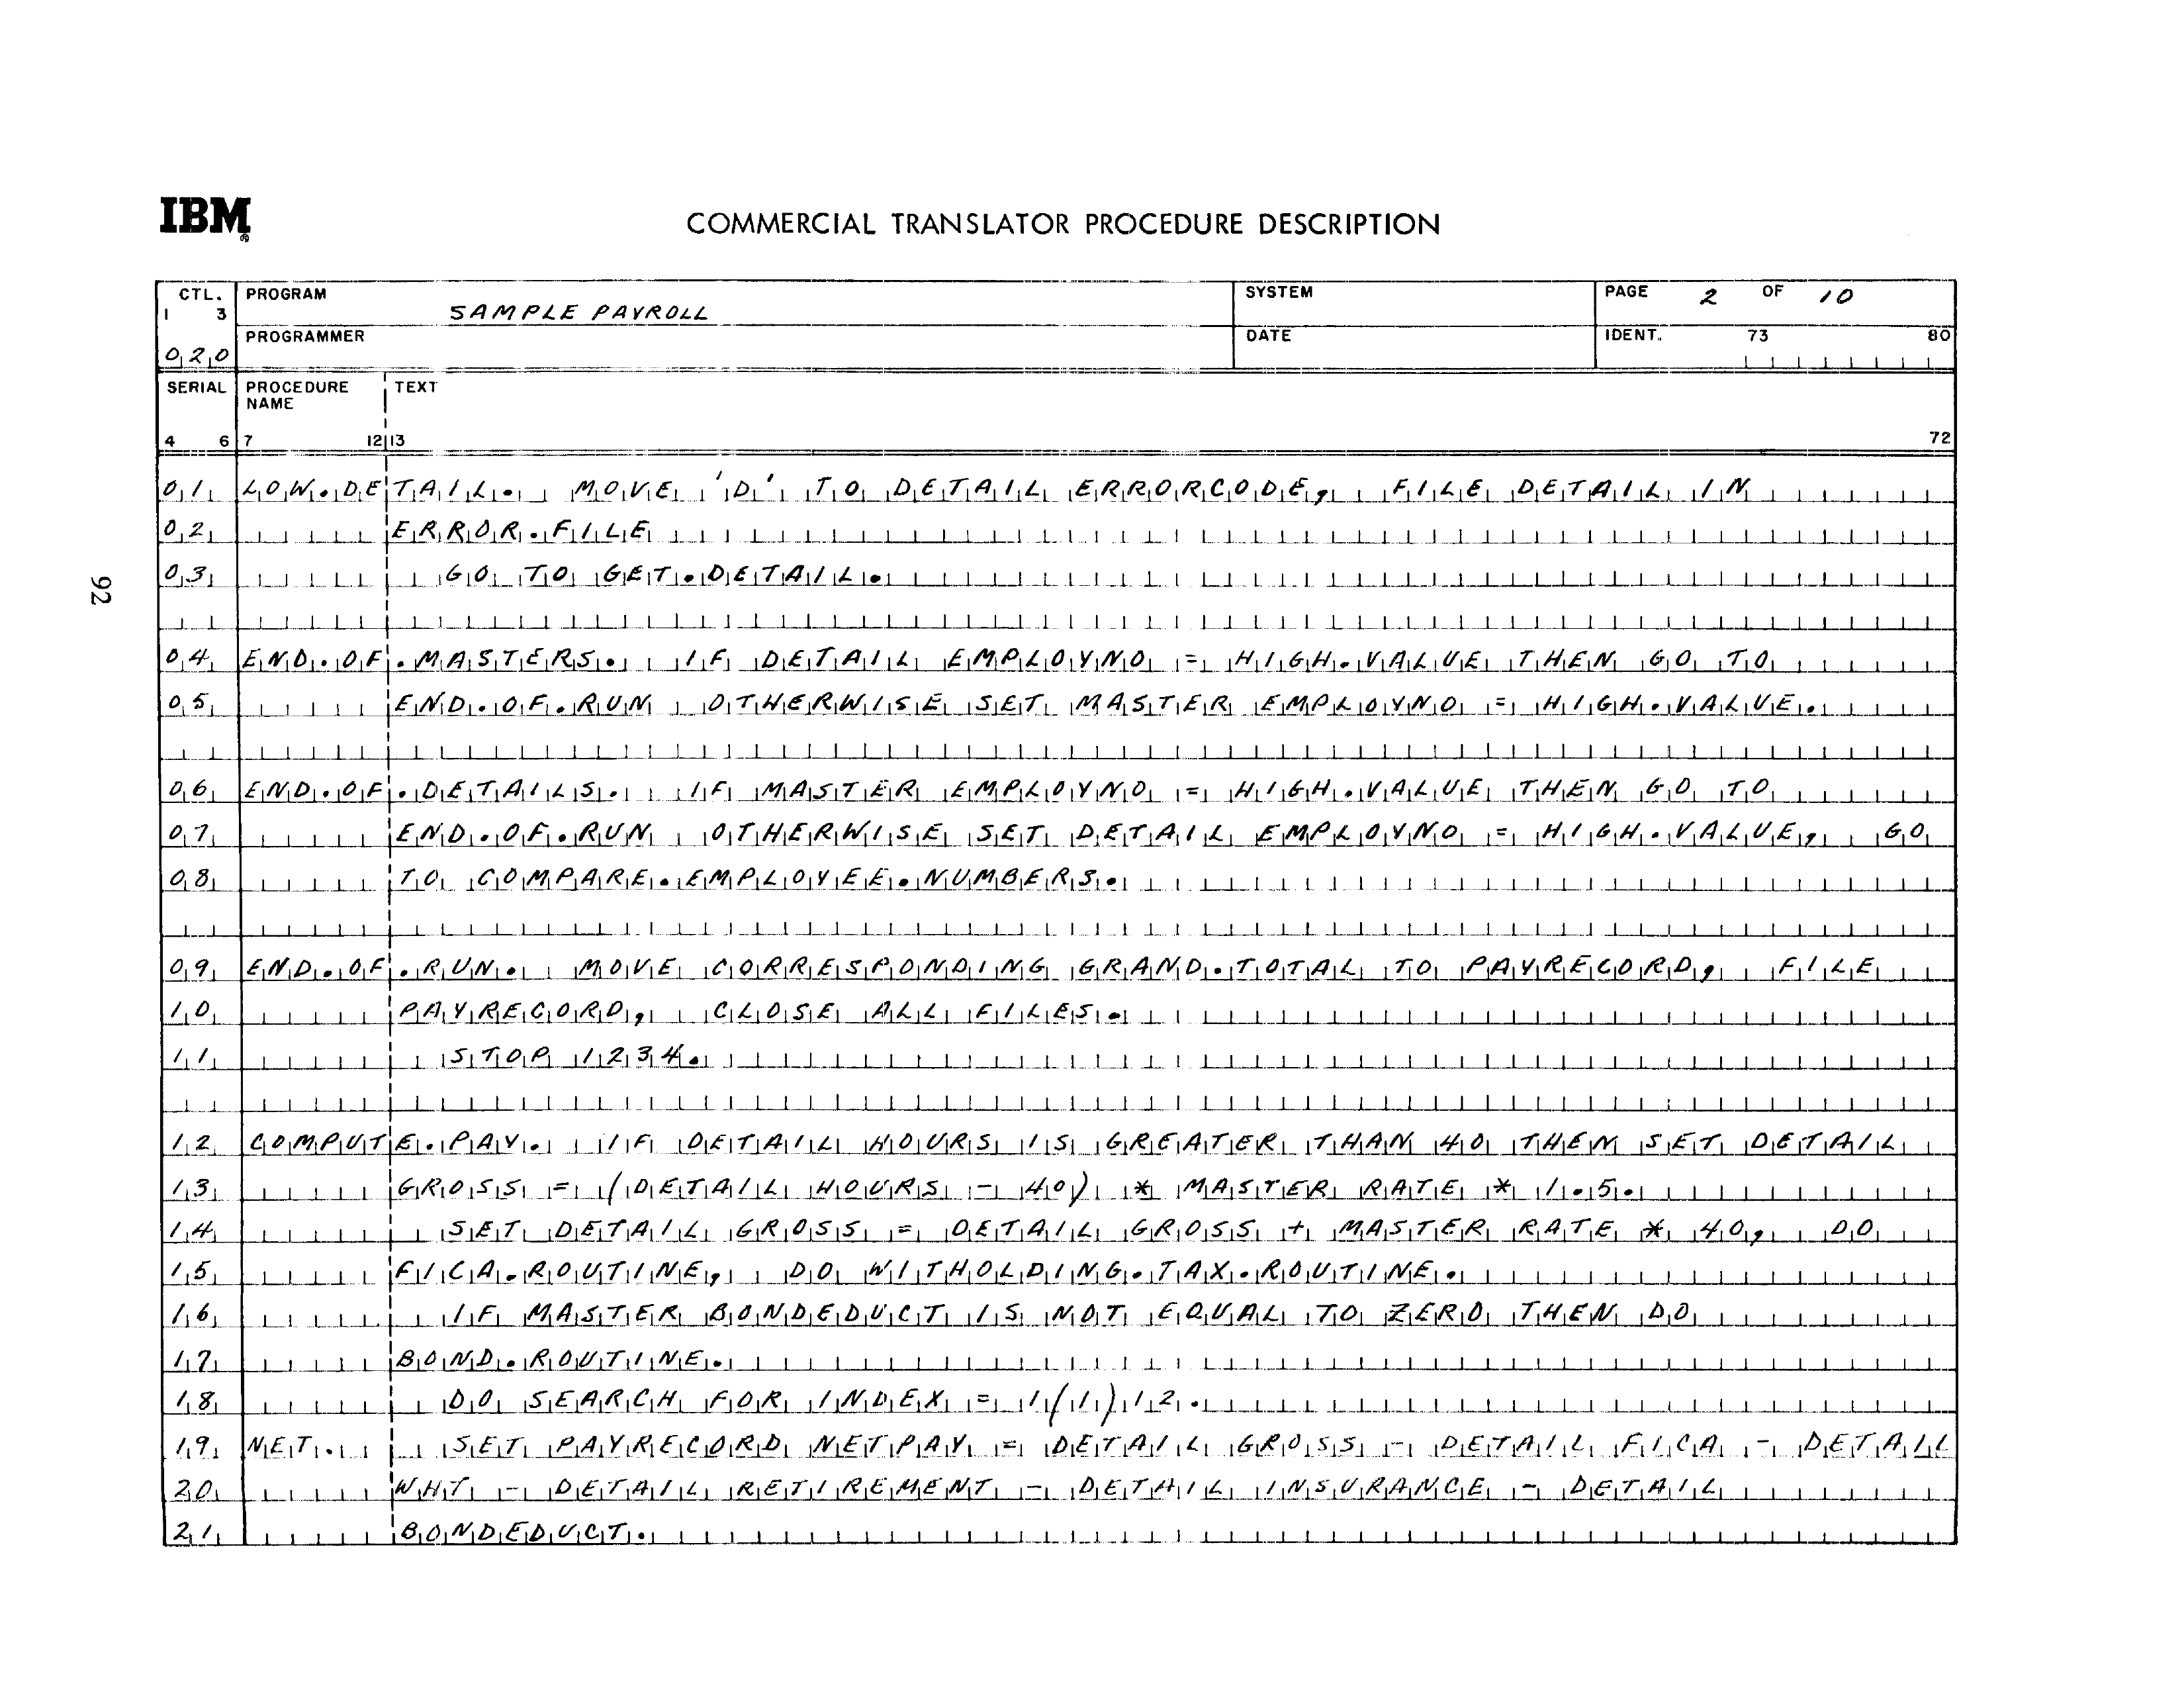 IBM®
COMMERCIAL TRANSLATOR PROCEDURE DESCRIPTION
CTL. PROGRAM SYSTEM PAGE 2 OF 10
1 3 SAMPLE PAYROLL
PROGRAMMER DATE IDENT. 73 80
020
SERIAL PROCEDURE NAME TEXT
4 6 7 12 13 72
01 LOW.DETAIL. MOVE 'D' TO DETAIL ERRORCODE, FILE DETAIL IN
02 ERROR.FILE
03 GO TO GET.DETAIL.
04 END.OF.MASTERS. IF DETAIL EMPLOYNO = HIGH.VALUE THEN GO TO
05 END.OF.RUN OTHERWISE SET MASTER EMPLOYNO = HIGH.VALUE.
06 END.OF.DETAILS. IF MASTER EMPLOYNO = HIGH.VALUE THEN GO TO
07 END.OF.RUN OTHERWISE SET DETAIL EMPLOYNO = HIGH.VALUE, GO
08 TO COMPARE.EMPLOYEE.NUMBERS.
09 END.OF.RUN. MOVE CORRESPONDING GRAND.TOTAL TO PAYRECORD, FILE
10 PAYRECORD, CLOSE ALL FILES.
11 STOP 1234.
12 COMPUTE.PAY. IF DETAIL HOURS IS GREATER THAN 40 THEN SET DETAIL
13 GROSS = (DETAIL HOURS - 40) * MASTER RATE * 1.5.
14 SET DETAIL GROSS = DETAIL GROSS + MASTER RATE * 40, DO
15 FICA.ROUTINE, DO WITHOLDING.TAX.ROUTINE.
16 IF MASTER BONDEDUCT IS NOT EQUAL TO ZERO THEN DO
17 BOND.ROUTINE.
18 DO SEARCH FOR INDEX = 1(1)12.
19 NET. SET PAYRECORD NETPAY = DETAIL GROSS - DETAIL FICA - DETAIL
20 WHT - DETAIL RETIREMENT - DETAIL INSURANCE - DETAIL
21 BONDEDUCT.
92